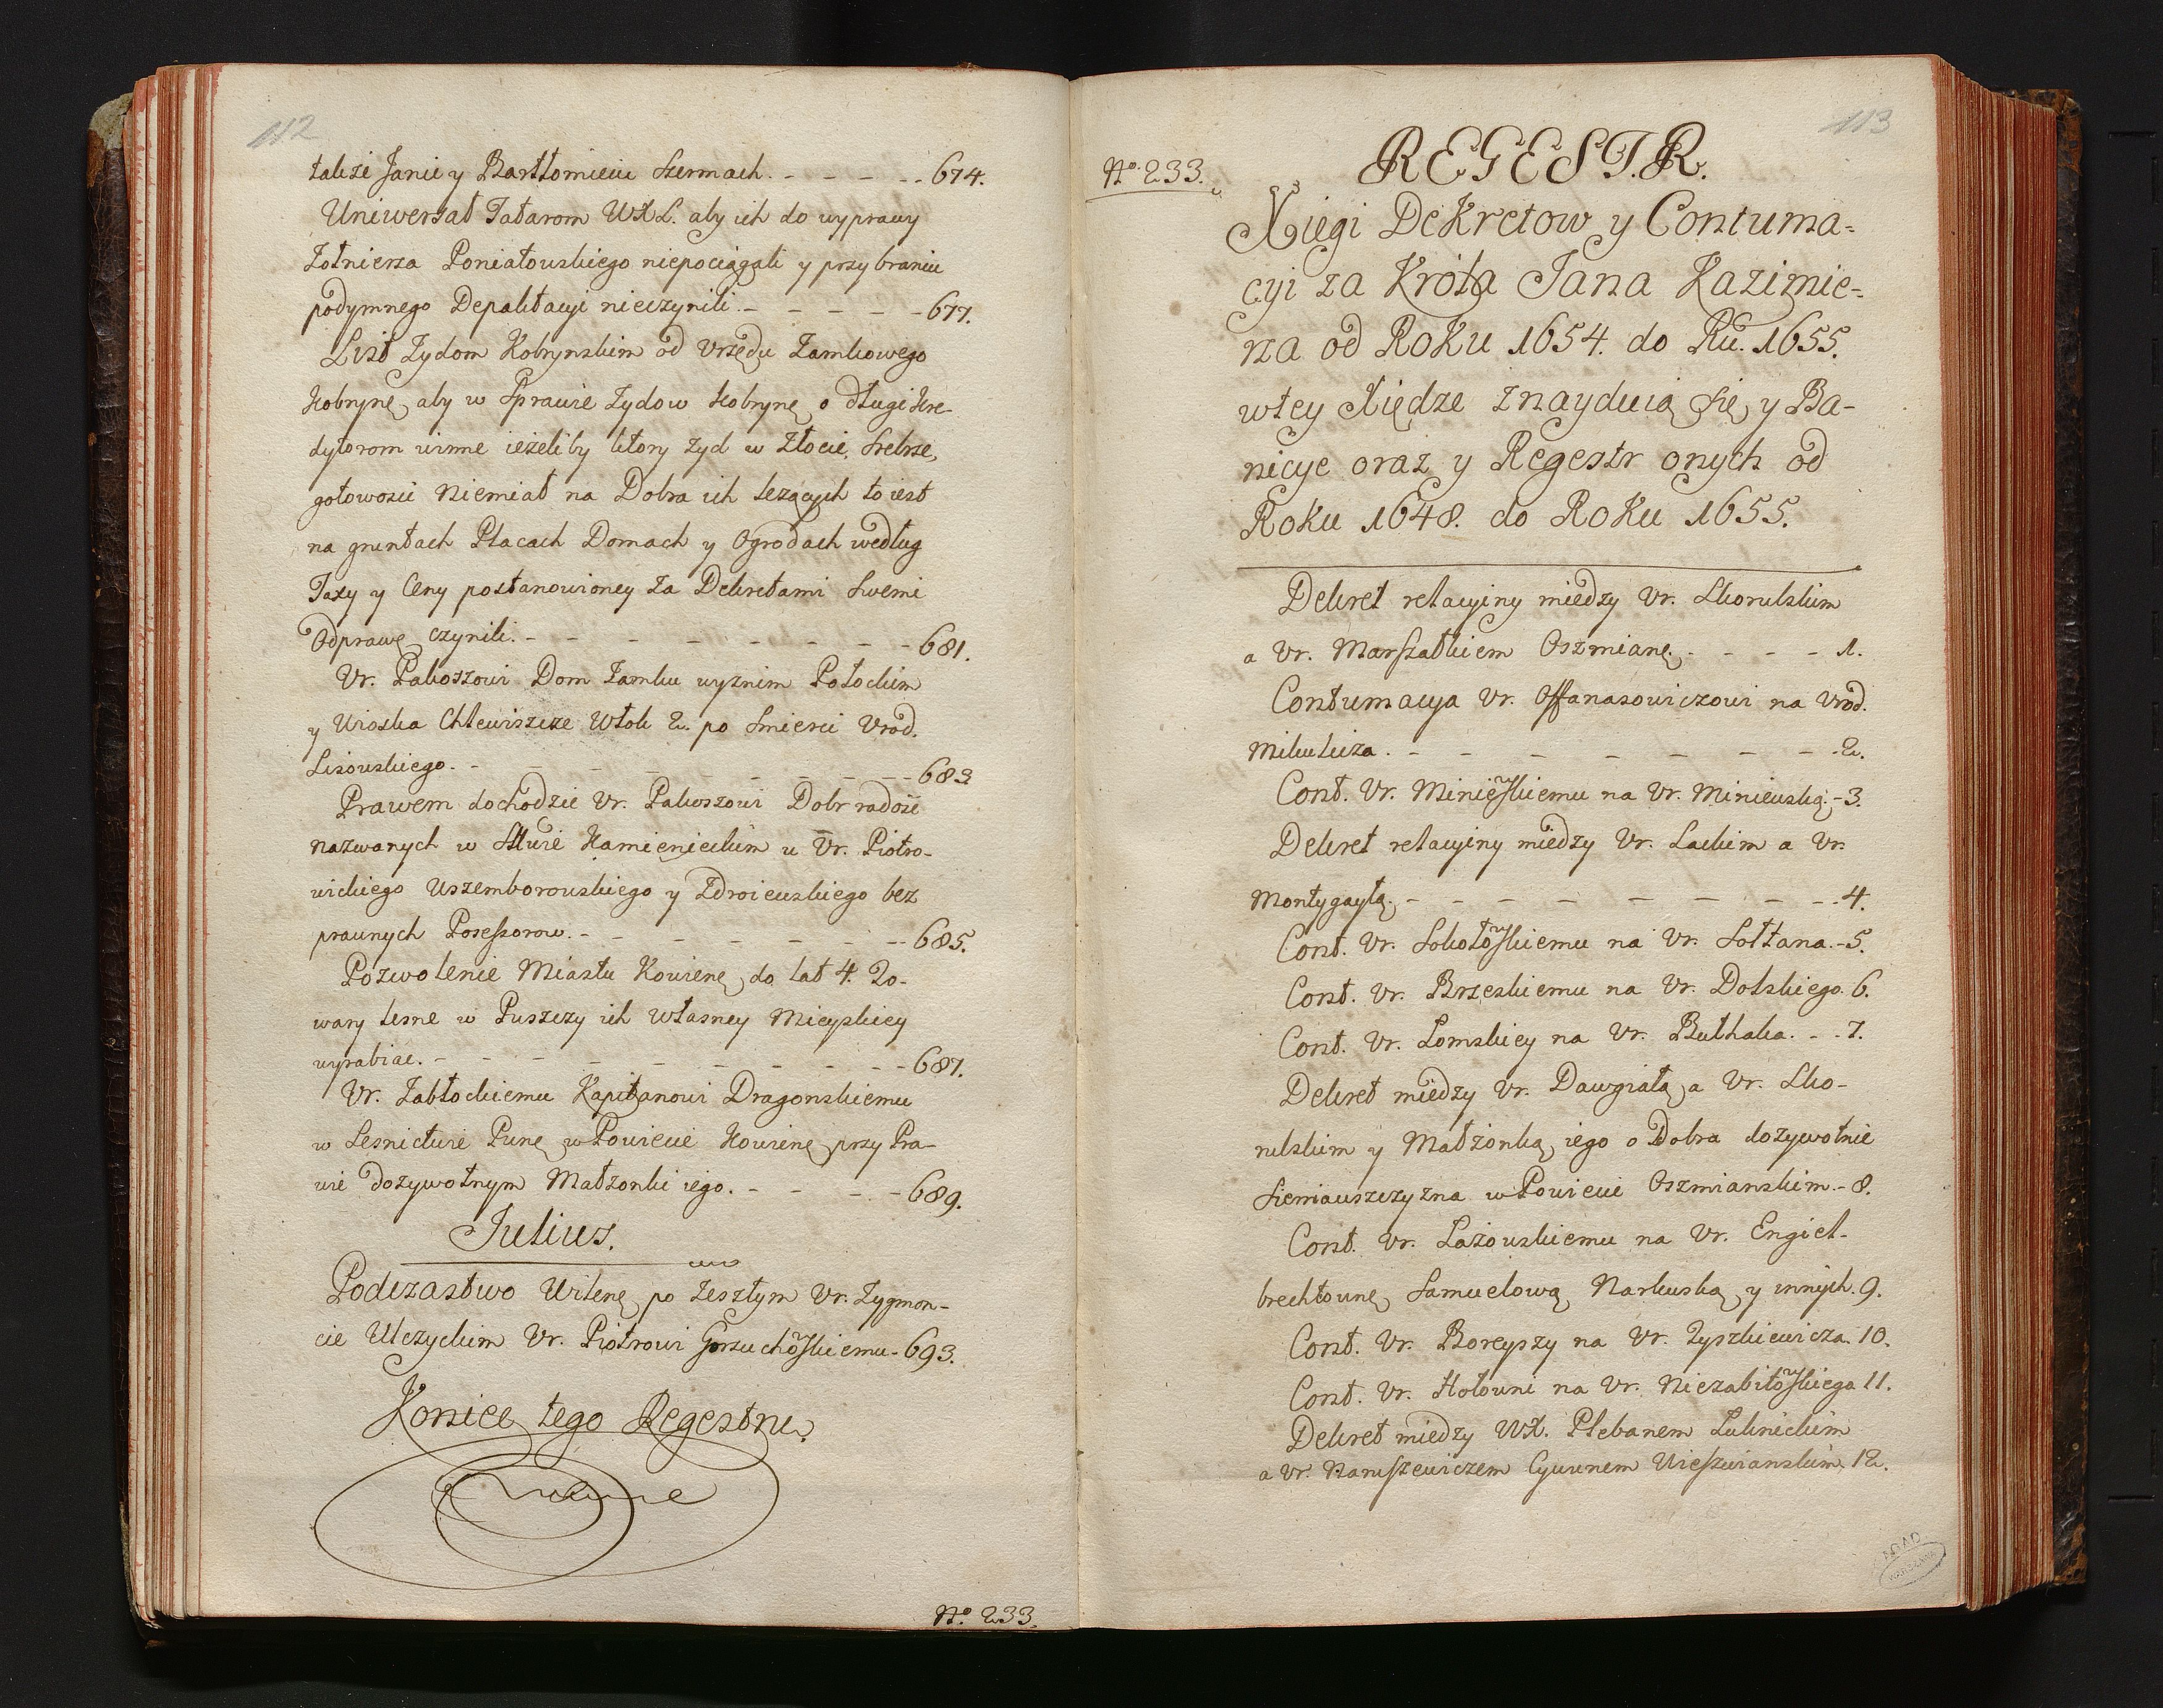 112
talizi Janie y Bartłomieiu Szermach. - - - - - 674.
Uniwersał Tatarom WXL. aby ich do wyprawy
Żołnierza Poniatowskiego niepociągali y przy braniu
podymnego Depalitacyi nieczynili. - - - - - 677.
List Żydom Kobrynskim od Vrzędu Zamkowego
Kobrynę, aby w Sprawie Żydow Kobrynę, o długi kre-
dytorom winne ieżeliby ktory Żyd w Złocie, Srebrze,
gotowości niemiał na Dobra ich leżących to iest
na gruntach Placach Domach y Ogrodach według
Taxy y Ceny postanowioney za Dekretami Swemi
Odprawę czynili. - - - - - - - 681.
Vr. Pakoszowi Dom Zamku wyznim Połockim
y Wioska Chlewiszcze Włok 2. po Smierci Vrod.
Lisowskiego. - - - - - - - - 683
Prawem dochodzić Vr. Pakoszowi Dobr radość
nazwanych w Sttwie Kamienieckim u Vr. Piotro-
wickiego Uszemborowskiego y Zdroiewskiego bez
prawnych Posessorow. - - - - - - 685.
Pozwolenie Miastu Kowienę, do lat 4. To-
wary lesne w Puszczy ich własney Mieyskiey
wyrabiac. - - - - - - - - 687.
Vr. Zabłockiemu Kapitanowi Dragonskiemu
w Lesnictwie Punę, w Powiecie Kowienę, przy Pra-
wie dożywotnym Małżonki iego. - - - - 689.
Iulius.
Podczastwo Wilenę, po Zeszłym Vr. Zygmon-
cie Uleżyckim Vr. Piotrowi Gorzuchowskiemu - 693.
Koniec tego Regestru.
No. 233.
113
No. 233.
REGESTR.
Xięgi Dekretow y Contuma-
cyi za Króla Jana Kazimie-
rza od Roku 1654. do Ru. 1655.
wtey Xiędze znayduią się, y Ba-
nicye oraz y Regestr onych od
Roku 1648. do Roku 1655.
Dekret relacyiny miedzy Vr. Skorulskim
a Vr. Marszałkiem Oszmianę, - - - - 1.
Contumacya Vr. Offanasowiczowi na Vrod.
Mikulicza. - - - - - - - - 2.
Cont. Vr. Miniewskiemu na Vr. Miniewską. - 3.
Dekret relacyiny miedzy Vr. Lackim a Vr.
Montygayłą. - - - - - - - 4.
Cont. Vr. Sokołowskiemu na Vr. Sołtana. - 5.
Cont. Vr. Brzeskiemu na Vr. Dolskiego. 6.
Cont. Vr. Łomskiey na Vr. Buthaka. - - 7.
Dekret miedzy Vr. Dawgiałą, a Vr. Sko-
rulskim y Małżonką, iego o Dobra dożywotnie
Sieniawszczyzna w Powiecie Oszmianskim. - 8.
Cont. Vr. Łazowskiemu na Vr. Engiel-
brechtownę, Samuelową Narkuską, y innych. 9.
Cont. Vr. Boreyszy na Vr. Tyszkiewicza. 10.
Cont. Vr. Hołowni na Vr. Niezabitowskiego 11.
Dekret miedzy WX. Plebanem Łuknickim
a Vr. Naruszewiczem Cywunem Wieszwianskim. 12.
AGAD